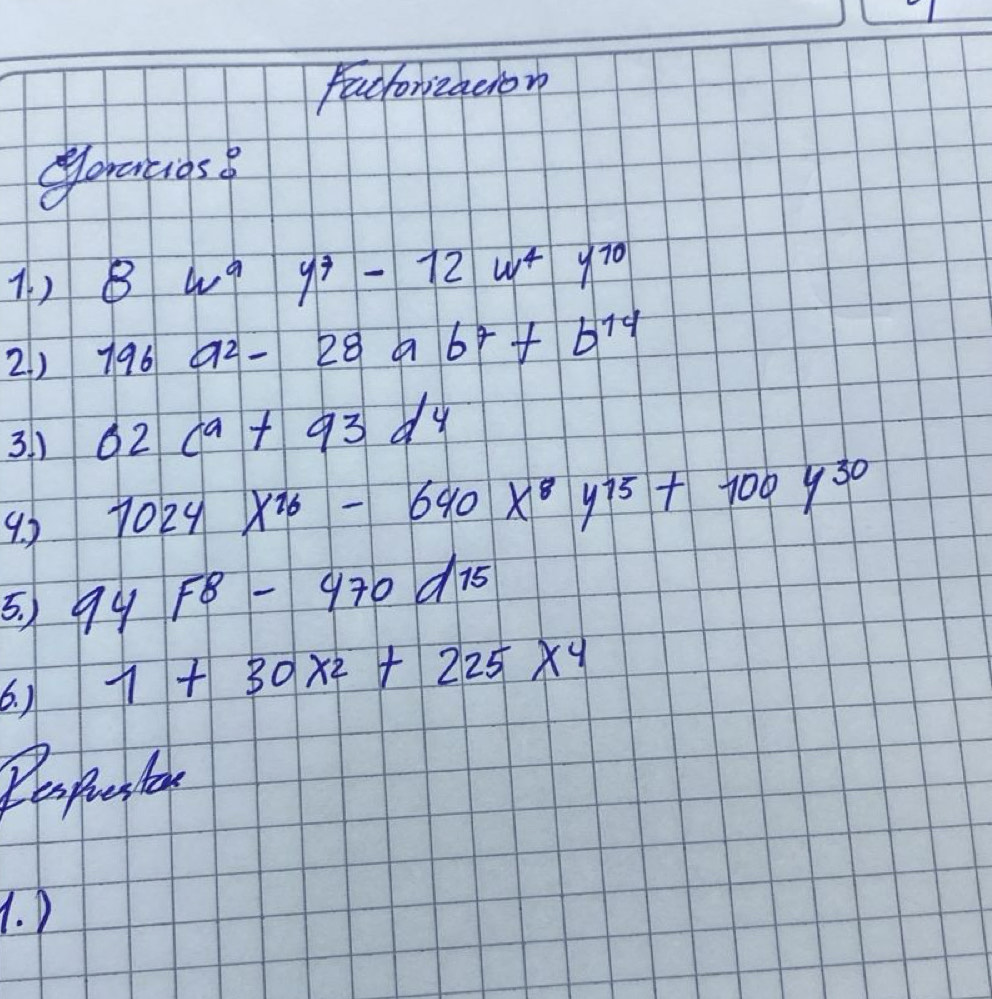 Factorizacion
Ejercicios:
1.) 8 w⁹ y⁷ - 12 w⁴ y¹⁰
2.) 196 a² - 28 a b⁷ + b¹⁴
3.) 62 c⁹ + 93 d⁴
4.) 1024 x¹⁶ - 640 x⁸ y¹⁵ + 100 y³⁰
5.) 94 F⁸ - 470 d¹⁵
6.) 1 + 30 x² + 225 x⁴
Respuestas
1.)